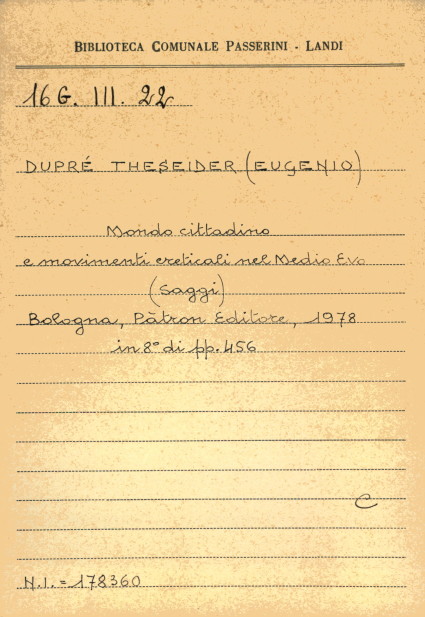 BIBLIOTECA COMUNALE PASSERINI - LANDI
16 G. III. 22
DUPRÉ THESEIDER (EUGENIO)
Mondo cittadino
e movimenti ereticali nel Medio Evo
(Saggi)
Bologna, Pàtron Editore, 1978
in 8° di pp. 456
C
N.I. = 178360